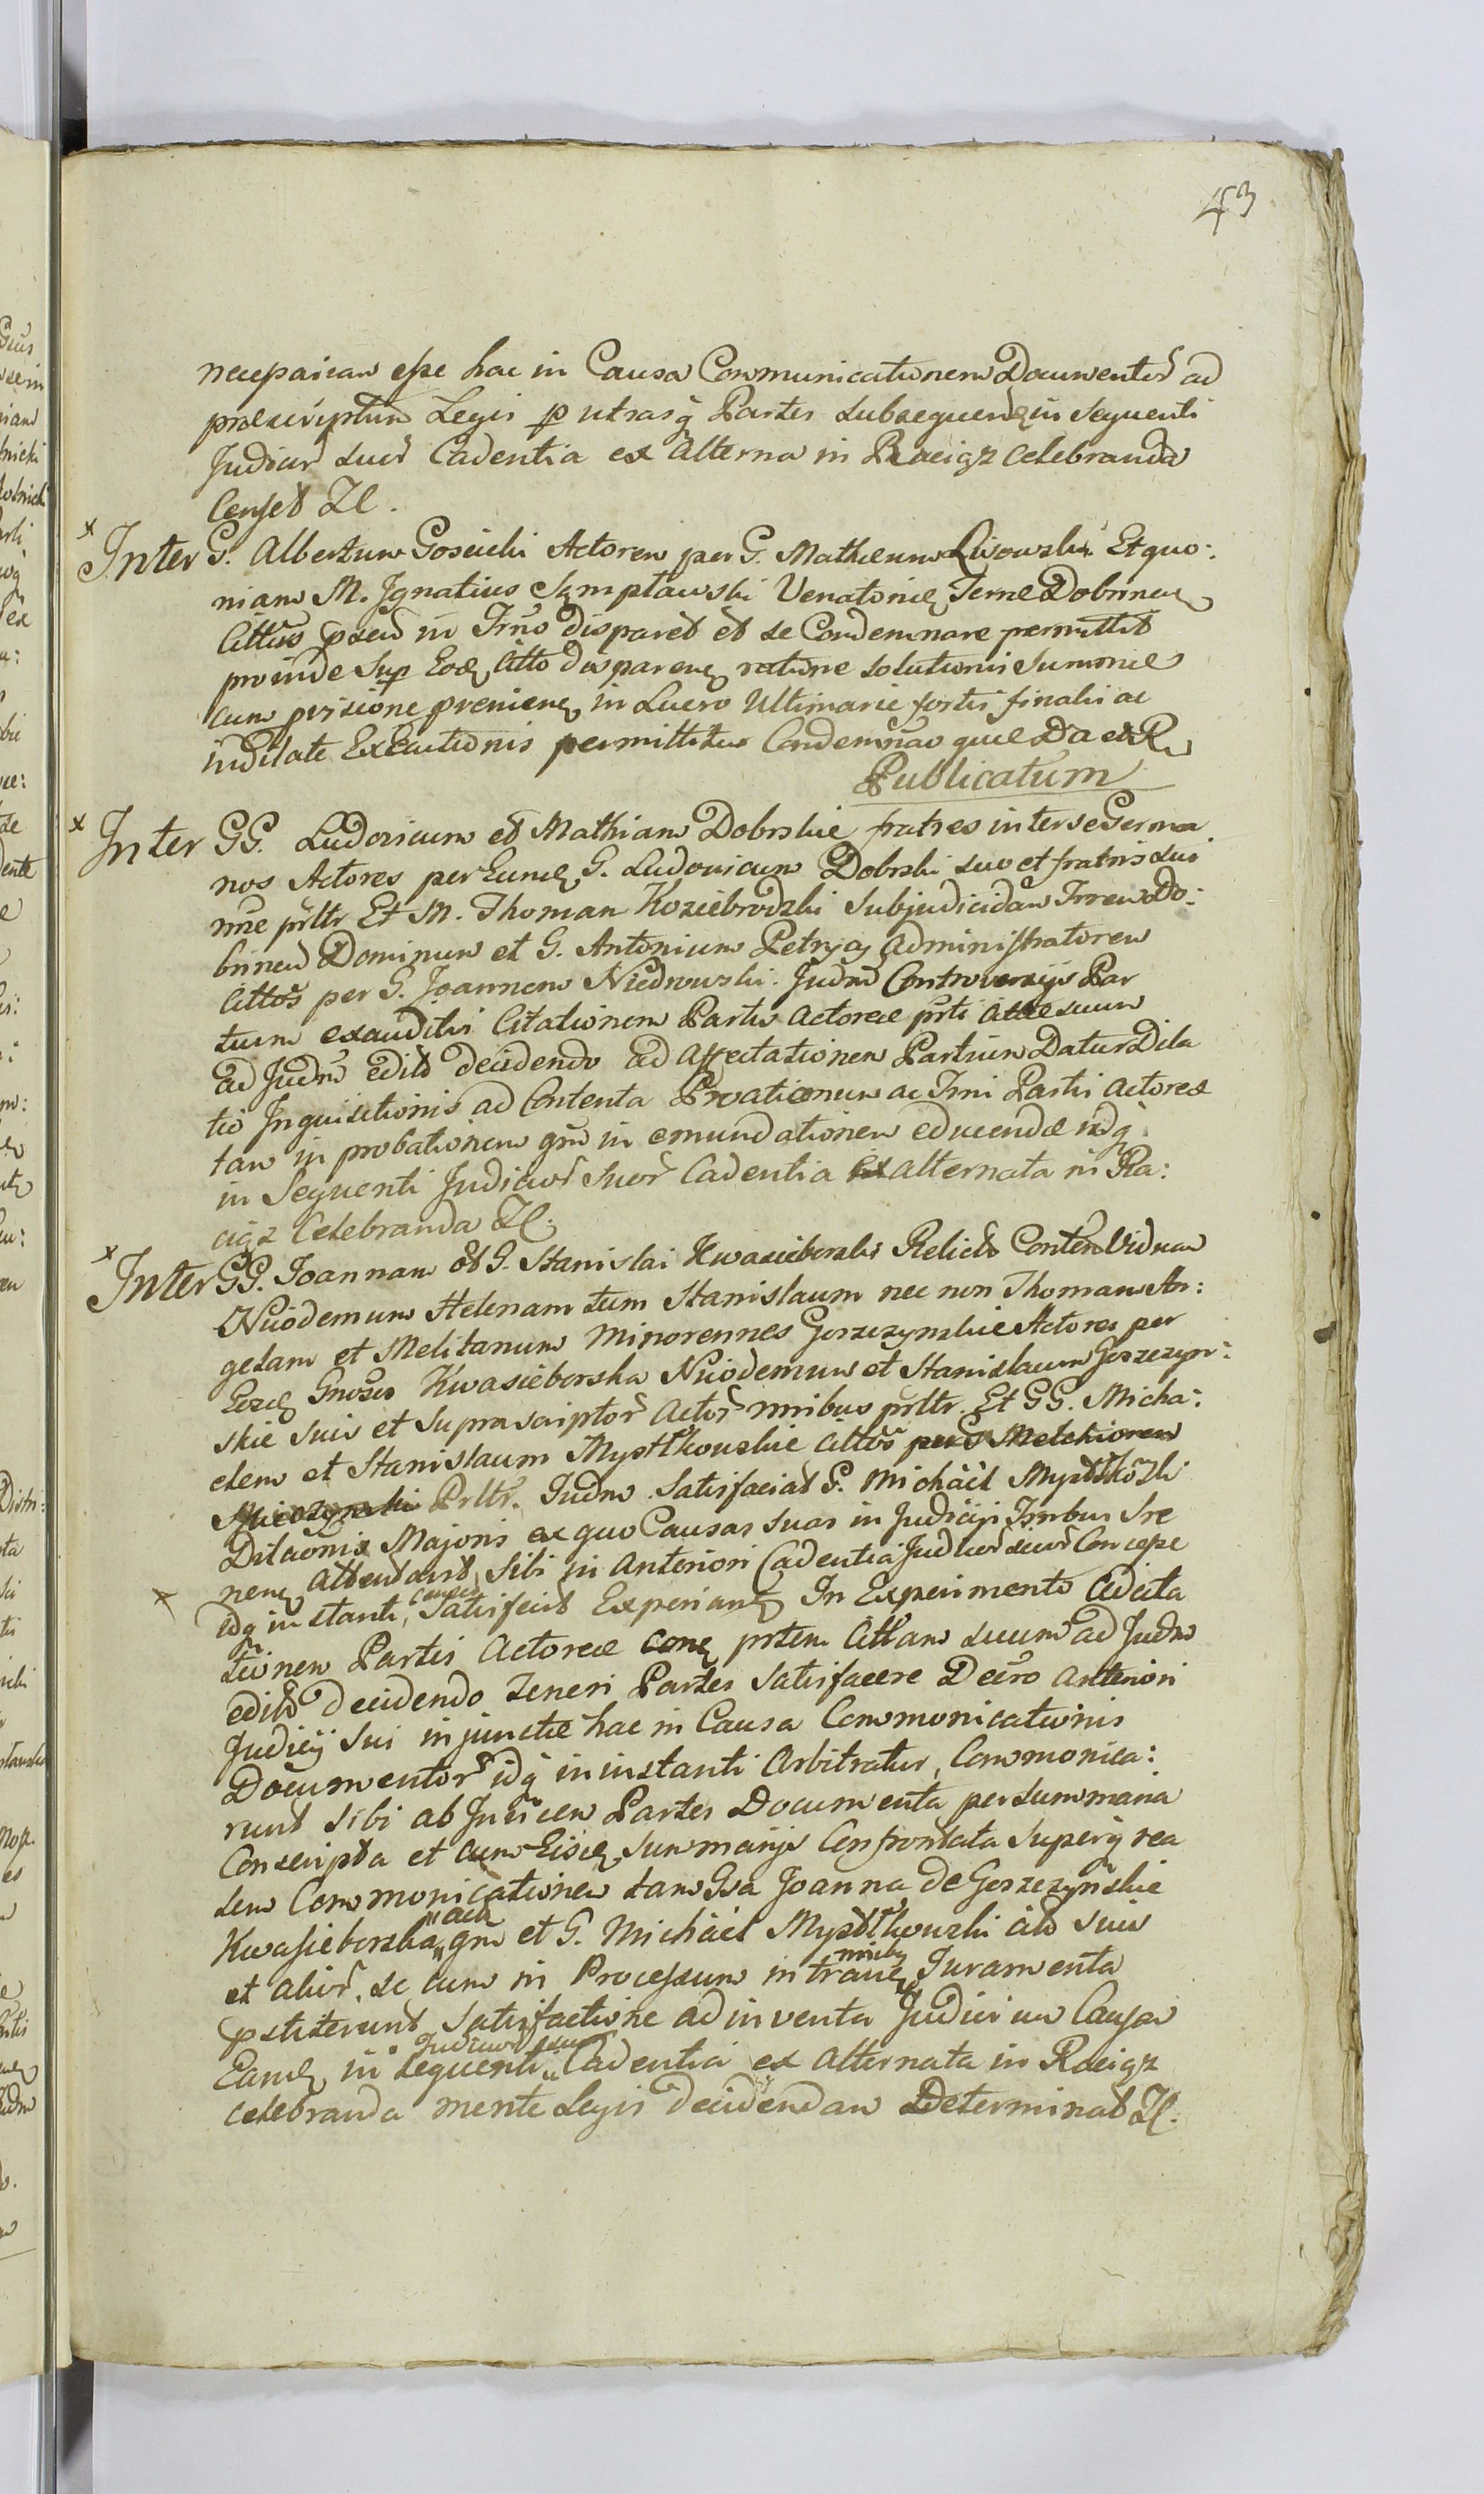 43
necessariam esse hac in Causa Communicationem Documentor̃ ad
praescriptum Legis p utrasq̃ Partes subsequenđ in sequenti
Judicior̃ suor̃ Cadentia ex alterna in Raciąz celebranda
Censet Zl.
Inter G. Albertum Goscicki Actorem per G. Mathaeum Lisowski Et quo:
niam M. Ignatius Sęmpławski Venatoriđ Terrae Dobrinen
Citťus in Trño disparet et se Condemnare permittit
proinde Sup Eođ Citto disparenť ratione solutionis Summae
cum pvisione provenienť in Lucro Ultimarie fortis finalis ac
indilate Executionis permittitur Condemnao quae Da et R
Publicatum
Inter GG. Ludovicum et Mathiam Dobrskie fratres inter se Germa
nos Actores per Eunđ G. Ludovicum Dobrski suo et fratris sui
nñe prltr Et M. Thomam Koziebrodzki Subjudicidam Trren Do:
brinen Dominum et G. Antonium Petrycy administratorem
Cittos per G. Joannem Niedrowski. Judm Controversijs Par
tium exauditis Citationem Partis Actoreae prti Cittae suum
ad Judm edito decidendo ad Affectationem Partium Datur Dila
tio Inquisitionis ad Contenta Pvationum ac Trni Parti Actoreae
tam in probationem qm in emundationem educendae idq̃
in Sequenti Judicior̃ Suor̃ Cadentia ex alternata in Ra:
ciąz Celebranda Zl.
Inter GG. Joannam ol G. Stanislai Kwasieborski Relictã Conten Viduam
Nicodemum Helenam tum Stanislaum nec non Thomam An:
gelam et Melitanum Minorennes Gorzezynskie Actores per
Eosđ Gnosos Kwasieborska Nicodemum et Stanislaum Gorzezyn:
skie suis et suprascriptor̃ Actor̃ nnibus prltr. Et GG. Micha:
elem et Stanislaum Mystkowskie Cittos per G Melchiorem
Prltr. Judm Satisfaciat G. Michael Mystkowski
Dilaonis Majoris ex quo Causas suas in Judicijs Trnbus
nenť attentavit, Sibi in Anteriori Cadentia Judicior̃ suor̃ Concesse
idq̃ in stanti, Causa Satisfecit Experianť In Experimento Cicita
tionem Partis Actoreae conť prtem Cittam suum ad Judm
edito Decidendo teneri Partes Satisfacere Decro Anteriori
Judicij Sui injunctae hac in Causa Commonicationis
Documentor̃ idq̃ in instanti Arbitratur, Commonica:
runt sibi ab Invicem Partes Documenta per summaria
Conscripta et cum Eisđ Summarijs Confrontata Superq̃ rea
lem Commonicationem tam Gsa Joanna de Gorzezynskie
Kwasieborska, acta qm et G. Michael Mystkowski acto suis
et alior̃, se cum in Processum intranť nnibus Juramenta
pstiterunt Satisfactione adinventa Judicium Causam
Eamđ in sequenti Judicior̃ suor̃ Cadentia ex Alternata in Raciąz
celebranda mente Legis decidendam Determinat Zl.